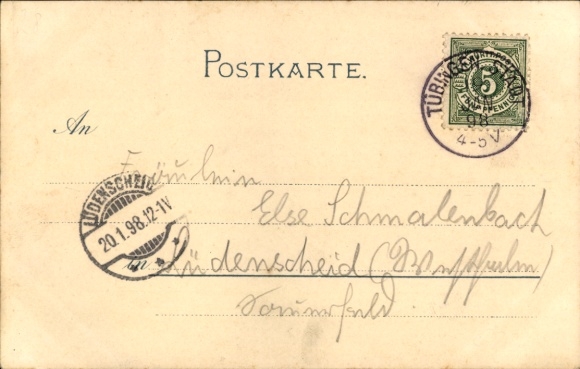 POSTKARTE.
TÜBINGEN STADT
JAN
98
4-5 V
5
FÜNF PFENNIG
An
Fräulein
Else Schmalenbach
LÜDENSCHEID
20.1.98.12-1V.
in Lüdenscheid (Westfalen)